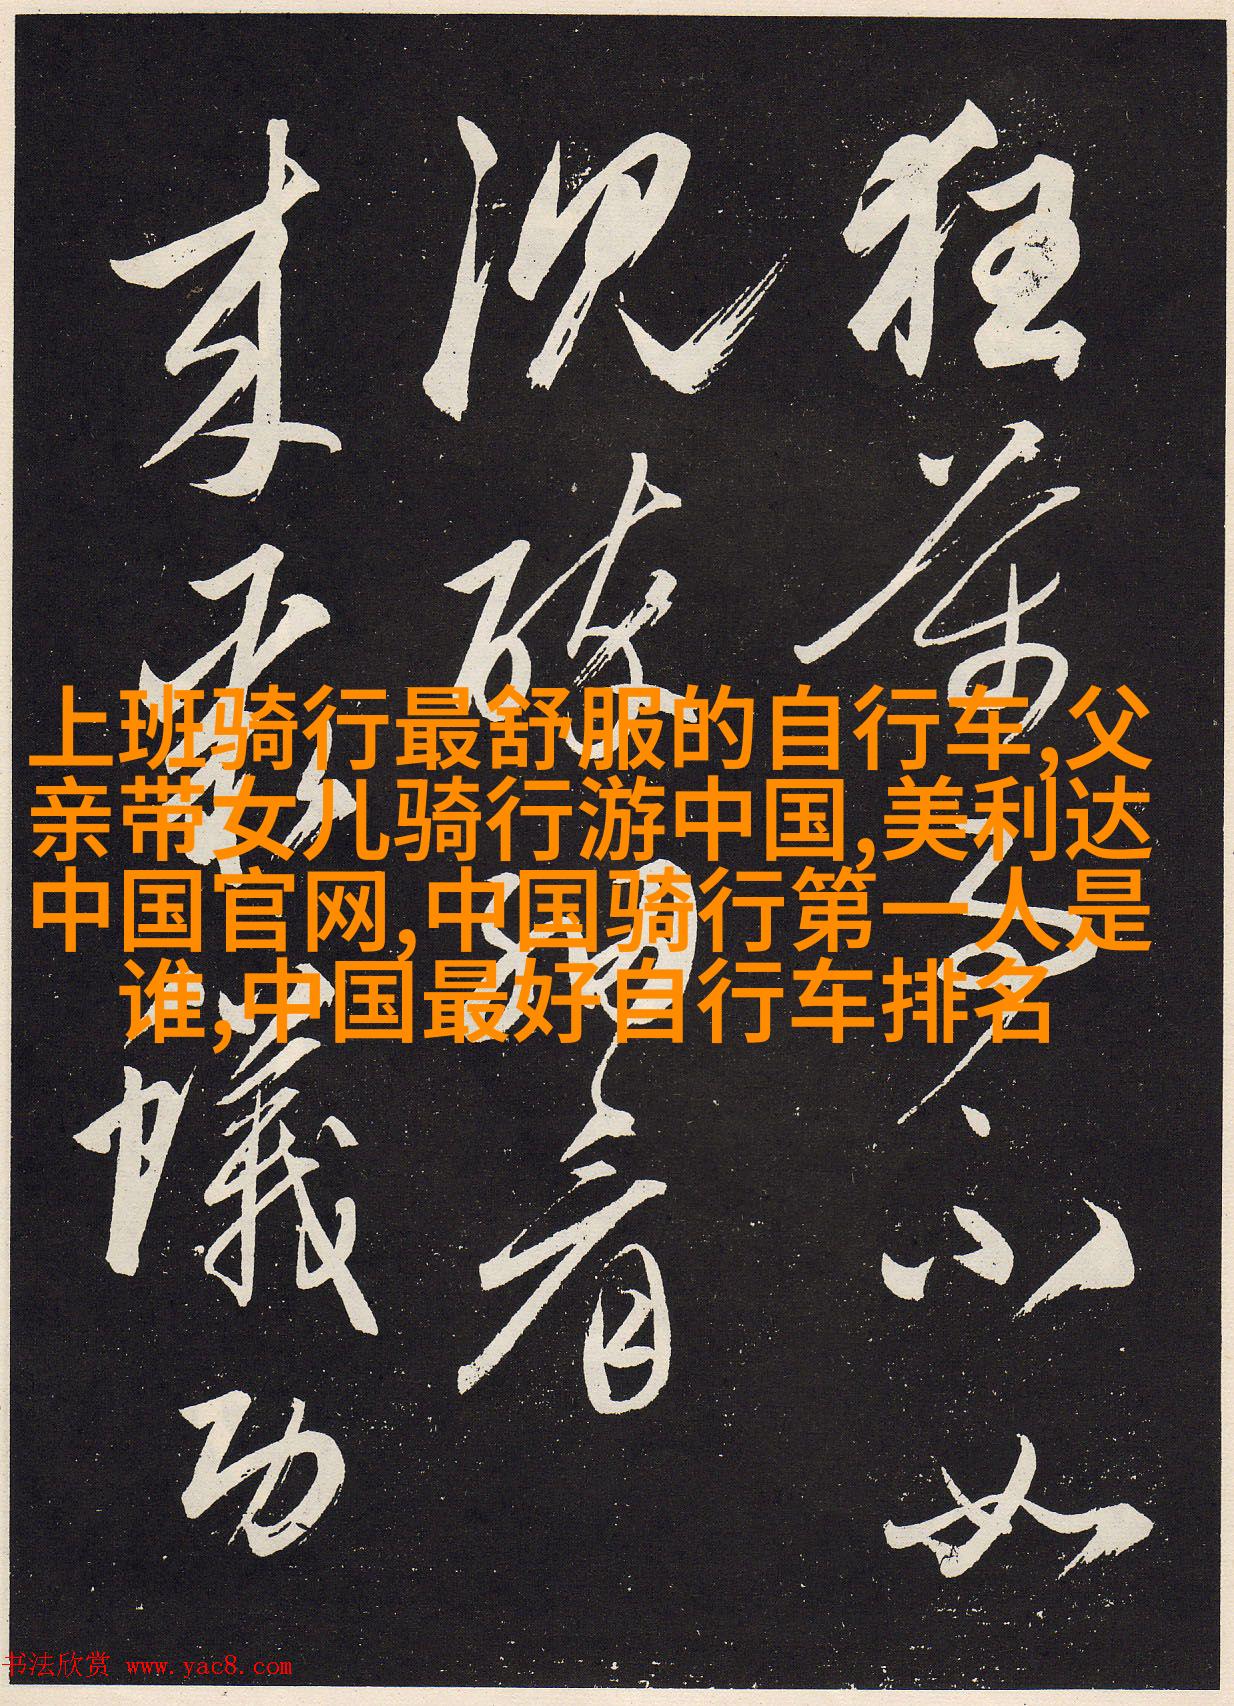 狂不如
看
来蟻功
上班骑行最舒服的自行车,父
亲带女儿骑行游中国,美利达
中国官网,中国骑行第一人是
谁,中国最好自行车排名
书法欣赏 www.yac8.com